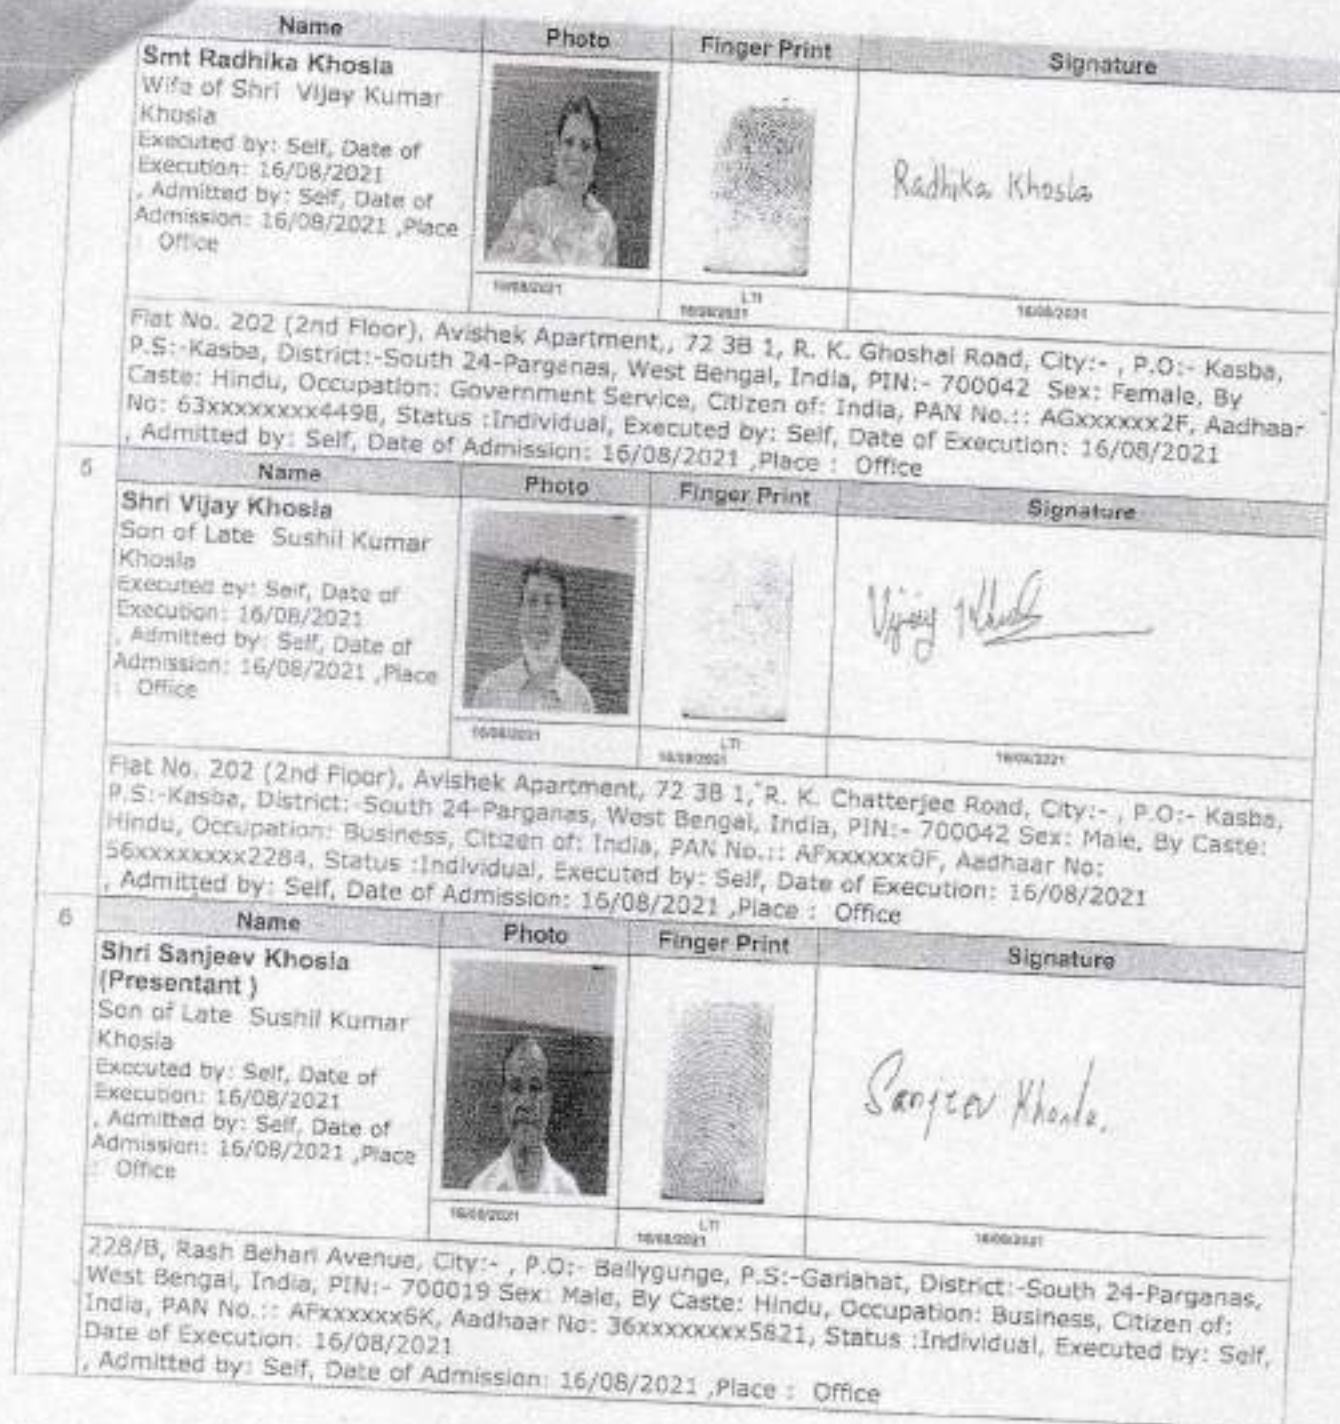 Name Photo Finger Print Signature
Smt Radhika Khosla
Wife of Shri Vijay Kumar
Khosla
Executed by: Self, Date of
Execution: 16/08/2021
, Admitted by: Self, Date of
Admission: 16/08/2021 ,Place
: Office
Radhika Khosla
16/08/2021 LTI
16/08/2021 16/08/2021
Flat No. 202 (2nd Floor), Avishek Apartment,, 72 3B 1, R. K. Ghoshal Road, City:- , P.O:- Kasba,
P.S:-Kasba, District:-South 24-Parganas, West Bengal, India, PIN:- 700042 Sex: Female, By
Caste: Hindu, Occupation: Government Service, Citizen of: India, PAN No.:: AGxxxxxx2F, Aadhaar
No: 63xxxxxxxx4498, Status :Individual, Executed by: Self, Date of Execution: 16/08/2021
, Admitted by: Self, Date of Admission: 16/08/2021 ,Place : Office
5 Name Photo Finger Print Signature
Shri Vijay Khosla
Son of Late Sushil Kumar
Khosla
Executed by: Self, Date of
Execution: 16/08/2021
, Admitted by: Self, Date of
Admission: 16/08/2021 ,Place
: Office
Vijay Khosla
16/08/2021 LTI
16/08/2021 16/08/2021
Flat No. 202 (2nd Floor), Avishek Apartment, 72 3B 1, R. K. Chatterjee Road, City:- , P.O:- Kasba,
P.S:-Kasba, District:-South 24-Parganas, West Bengal, India, PIN:- 700042 Sex: Male, By Caste:
Hindu, Occupation: Business, Citizen of: India, PAN No.:: AFxxxxxx0F, Aadhaar No:
56xxxxxxxx2284, Status :Individual, Executed by: Self, Date of Execution: 16/08/2021
, Admitted by: Self, Date of Admission: 16/08/2021 ,Place : Office
6 Name Photo Finger Print Signature
Shri Sanjeev Khosla
(Presentant )
Son of Late Sushil Kumar
Khosla
Executed by: Self, Date of
Execution: 16/08/2021
, Admitted by: Self, Date of
Admission: 16/08/2021 ,Place
: Office
Sanjeev Khosla.
16/08/2021 LTI
16/08/2021 16/08/2021
228/B, Rash Behari Avenue, City:- , P.O:- Ballygunge, P.S:-Gariahat, District:-South 24-Parganas,
West Bengal, India, PIN:- 700019 Sex: Male, By Caste: Hindu, Occupation: Business, Citizen of:
India, PAN No.:: AFxxxxxx6K, Aadhaar No: 36xxxxxxxx5821, Status :Individual, Executed by: Self,
Date of Execution: 16/08/2021
, Admitted by: Self, Date of Admission: 16/08/2021 ,Place : Office